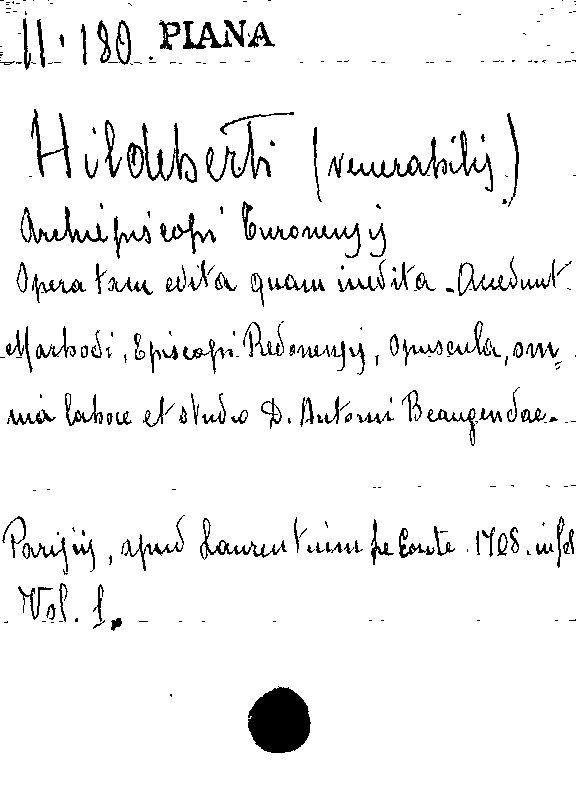 11.180 PIANA
Hildeberti (venerabilis)
Archiepiscopi Turonensis
Opera tam edita quam inedita - Accedunt
Marbodi, Episcopi Redonensis, Opuscula, om=
nia labore et studio D. Antonii Beaugendae.
Parisiis, apud Laurentium Le Conte. 1708. in fol
Vol. 1.